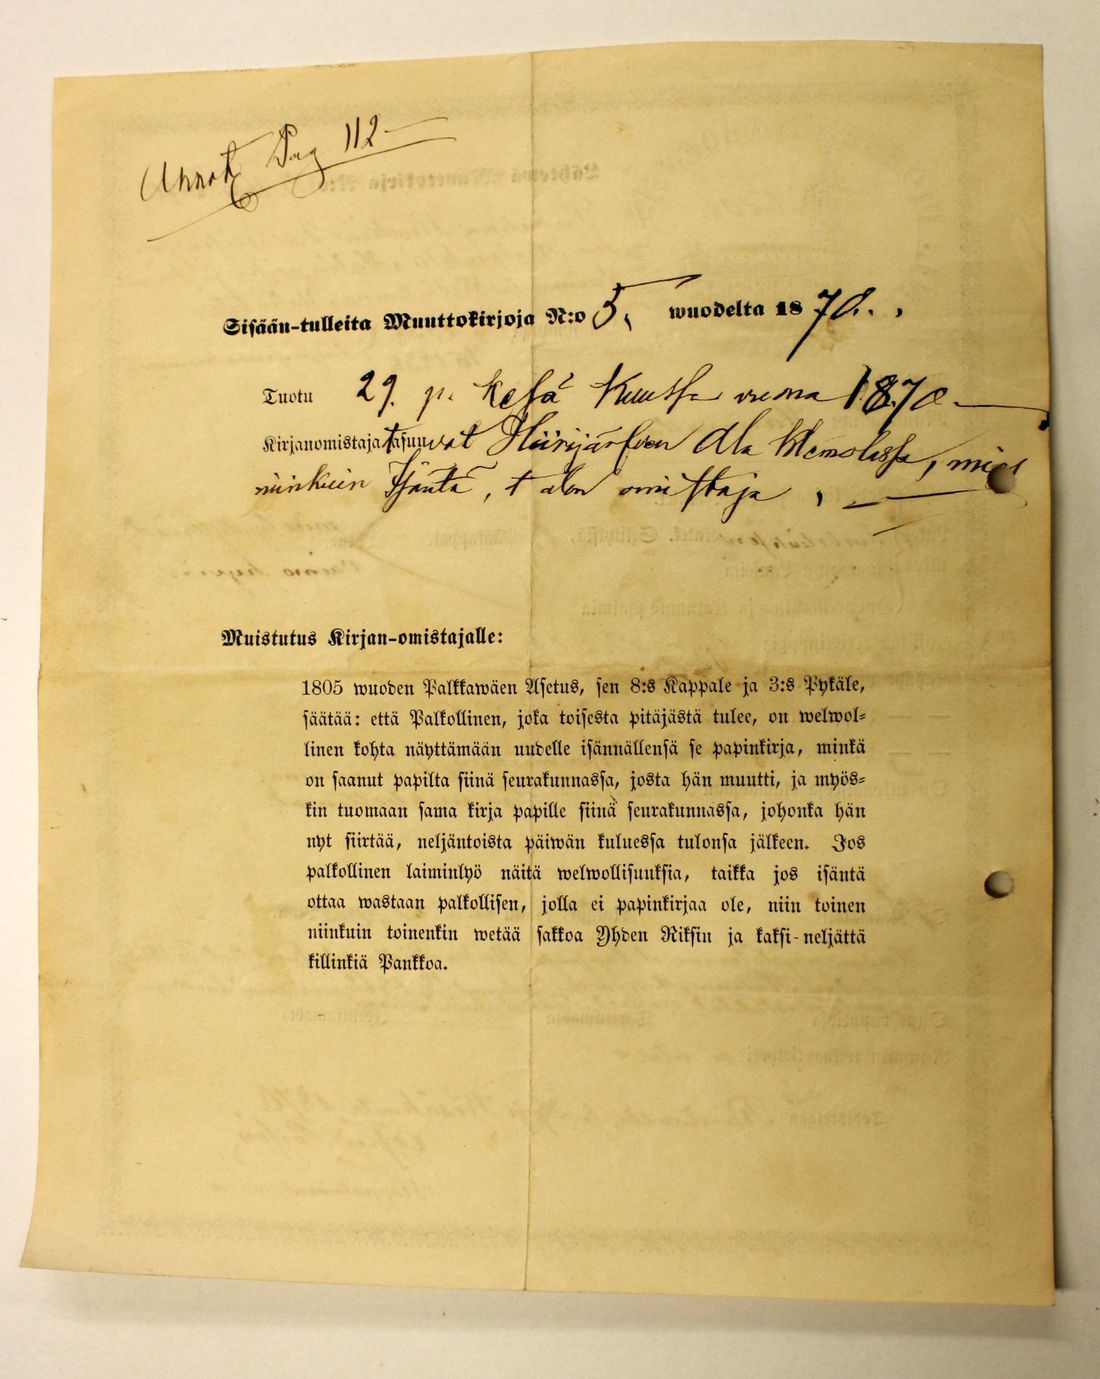 Annot Pag 112
Sisään-tulleita Muuttokirjoja N:o 5, wuodelta 1870.
Tuotu 29. p. kesä kuussa vuonna 1870
Kirjanomistaja asuuvat Hiirijärfven Ala Klemolassa,
niinkuin Isäntä, talon omistaja,
Muistutus Kirjan-omistajalle:
1805 wuoden Palkkawäen Asetus, sen 8:s Kappale ja 3:s Pykäle,
säätää: että Palkollinen, joka toisesta pitäjästä tulee, on welwol=
linen kohta näyttämään uudelle isännällensä se papinkirja, minkä
on saanut papilta siinä seurakunnassa, josta hän muutti, ja myös=
kin tuomaan sama kirja papille siinä seurakunnassa, johonka hän
nyt siirtää, neljäntoista päiwän kuluessa tulonsa jälkeen. Jos
palkollinen laiminlyö näitä welwollisuuksia, taikka jos isäntä
ottaa wastaan palkollisen, jolla ei papinkirjaa ole, niin toinen
niinkuin toinenkin wetää sakkoa Yhden Riksin ja kaksi-neljättä
killinkiä Pankkoa.